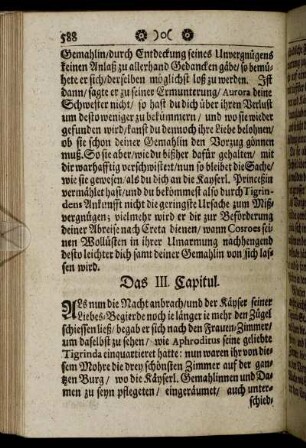 588
Gemahlin/durch Entdeckung seines Unvergnügens
keinen Anlaß zu allerhand Gedancken gäbe/so bemü-
hete er sich/derselben möglichst loß zu werden. Ist
dann/sagte er zu seiner Ermunterung/Aurora deine
Schwester nicht/ so hast du dich über ihren Verlust
um desto weniger zu bekümmern/ und wo sie wieder
gefunden wird/kanst du dennoch ihre Liebe belohnen/
ob sie schon deiner Gemahlin den Vorzug gönnen
muß. So sie aber/wie du bißher dafür gehalten/ mit
dir warhafftig verschwistert/nun so bleibet die Sache/
wie sie gewesen/als du dich an die Kayserl. Princeßin
vermählet hast/und du bekömmest also durch Tigrin-
dens Ankunfft nicht die geringste Ursache zum Miß-
vergnügen; vielmehr wird er dir zur Beförderung
deiner Abreise nach Creta dienen/wann Cosroes sei-
nen Wollüsten in ihrer Umarmung nachhengend
desto leichter dich samt deiner Gemahlin von sich las-
sen wird.
Das III. Capitul.
ALs nun die Nacht anbrach/und der Käyser seiner
Liebes-Begierde noch ie länger ie mehr den Zügel
schiessen ließ/ begab er sich nach den Frauen-Zimmer/
um daselbst zu sehen/ wie Aphroditus seine geliebte
Tigrinda einquartieret hatte: nun waren ihr von die-
sem Mohre die drey schönsten Zimmer auf der gan-
tzen Burg/ wo die Käyserl. Gemahlinnen und Da-
men zu seyn pflegeten/ eingeräumet/ auch unter-
schied-